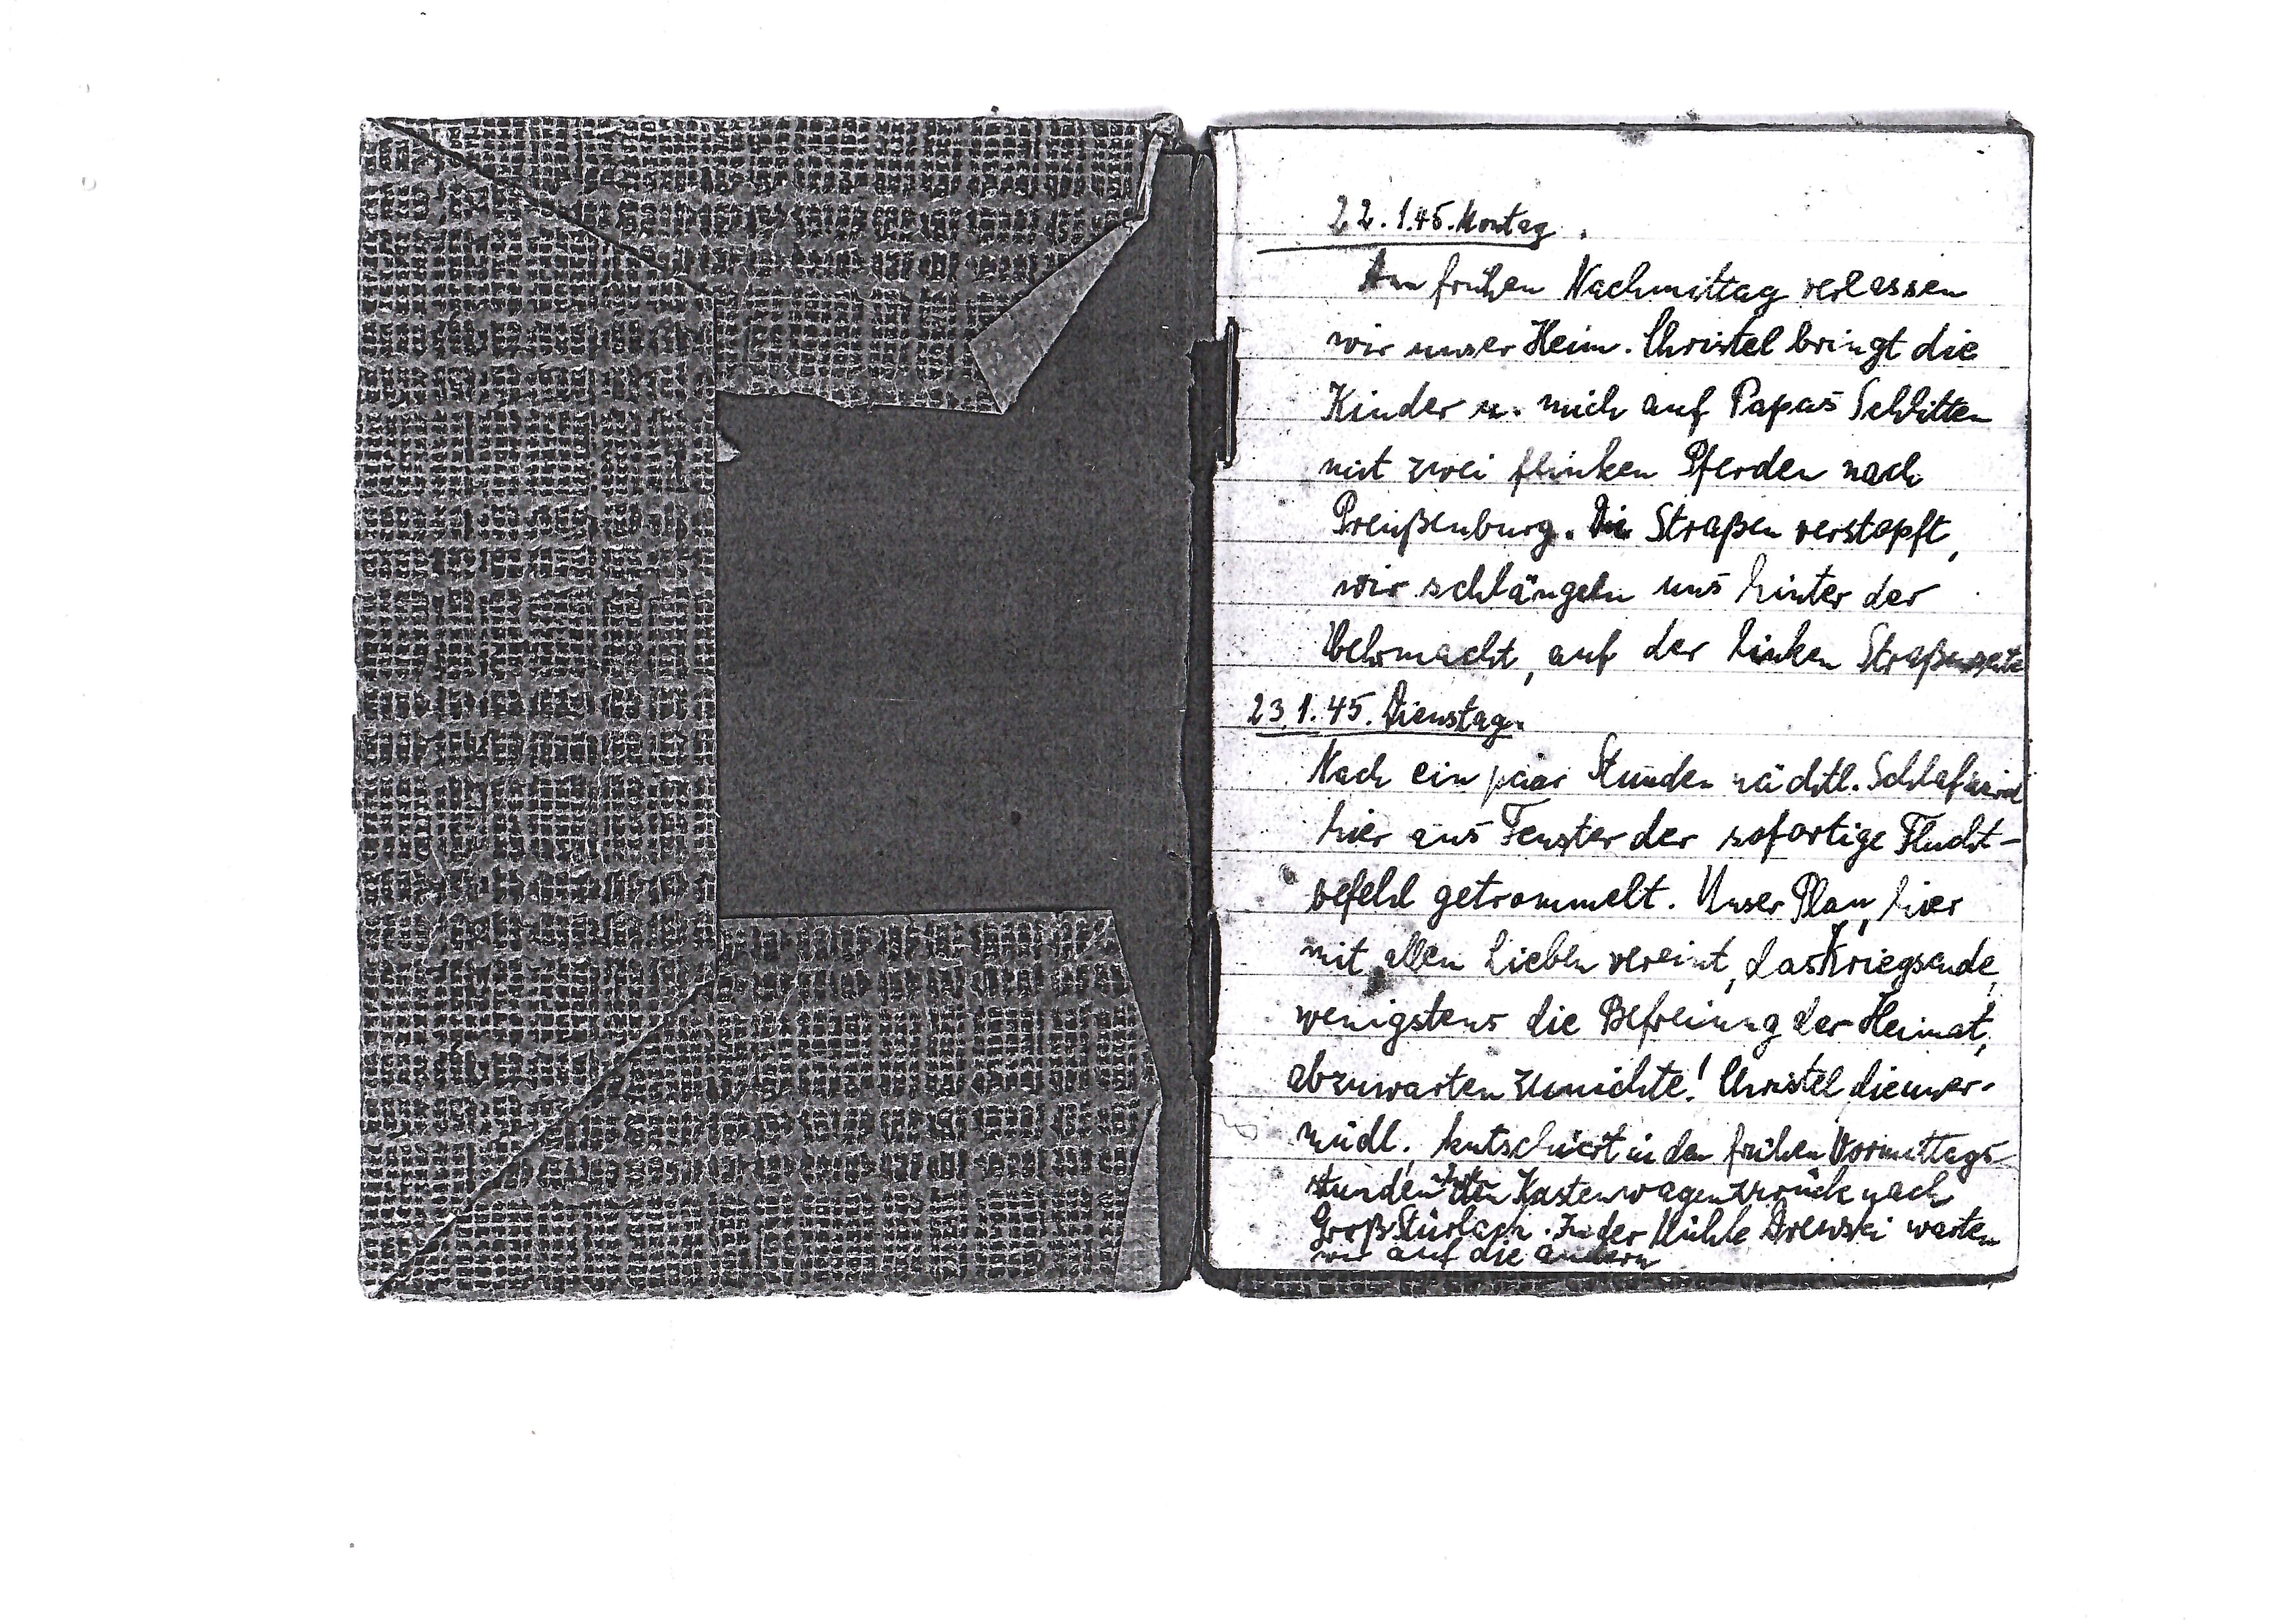 22.1.45. Montag.
Am frühen Nachmittag verlassen
wir unser Heim. Christel bringt die
Kinder u. mich auf Papas Schlitten
mit zwei flinken Pferden nach
Preußenburg. Die Straßen verstopft,
wir schlängeln uns hinter der
Wehrmacht, auf der linken Straßenseite
23.1.45. Dienstag.
Nach ein paar Stunden nächtl. Schlaf wird
hier ans Fenster der sofortige Flucht-
befehl getrommelt. Unser Plan, hier
mit allen Lieben vereint, das Kriegsende,
wenigstens die Befreiung der Heimat,
abzuwarten zunichte! Christel die uner-
müdl. kutschiert in den frühen Vormittags-
stunden den Kastenwagen zurück nach
Groß Stürlach. In der Mühle Drewski warten
wir auf die andern